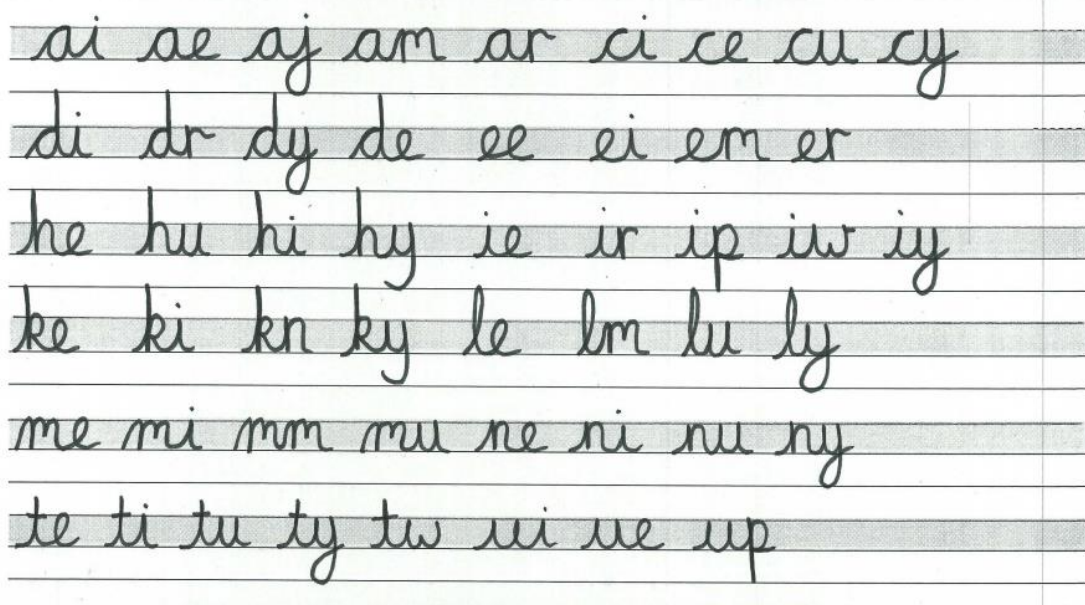 ai ae aj am ar ci ce cu cy
di dr dy de ee ei em er
he hu hi hy ie ir ip iw iy
ke ki kn ky le lm lu ly
me mi mm mu ne ni nu ny
te ti tu ty tw ui ue up